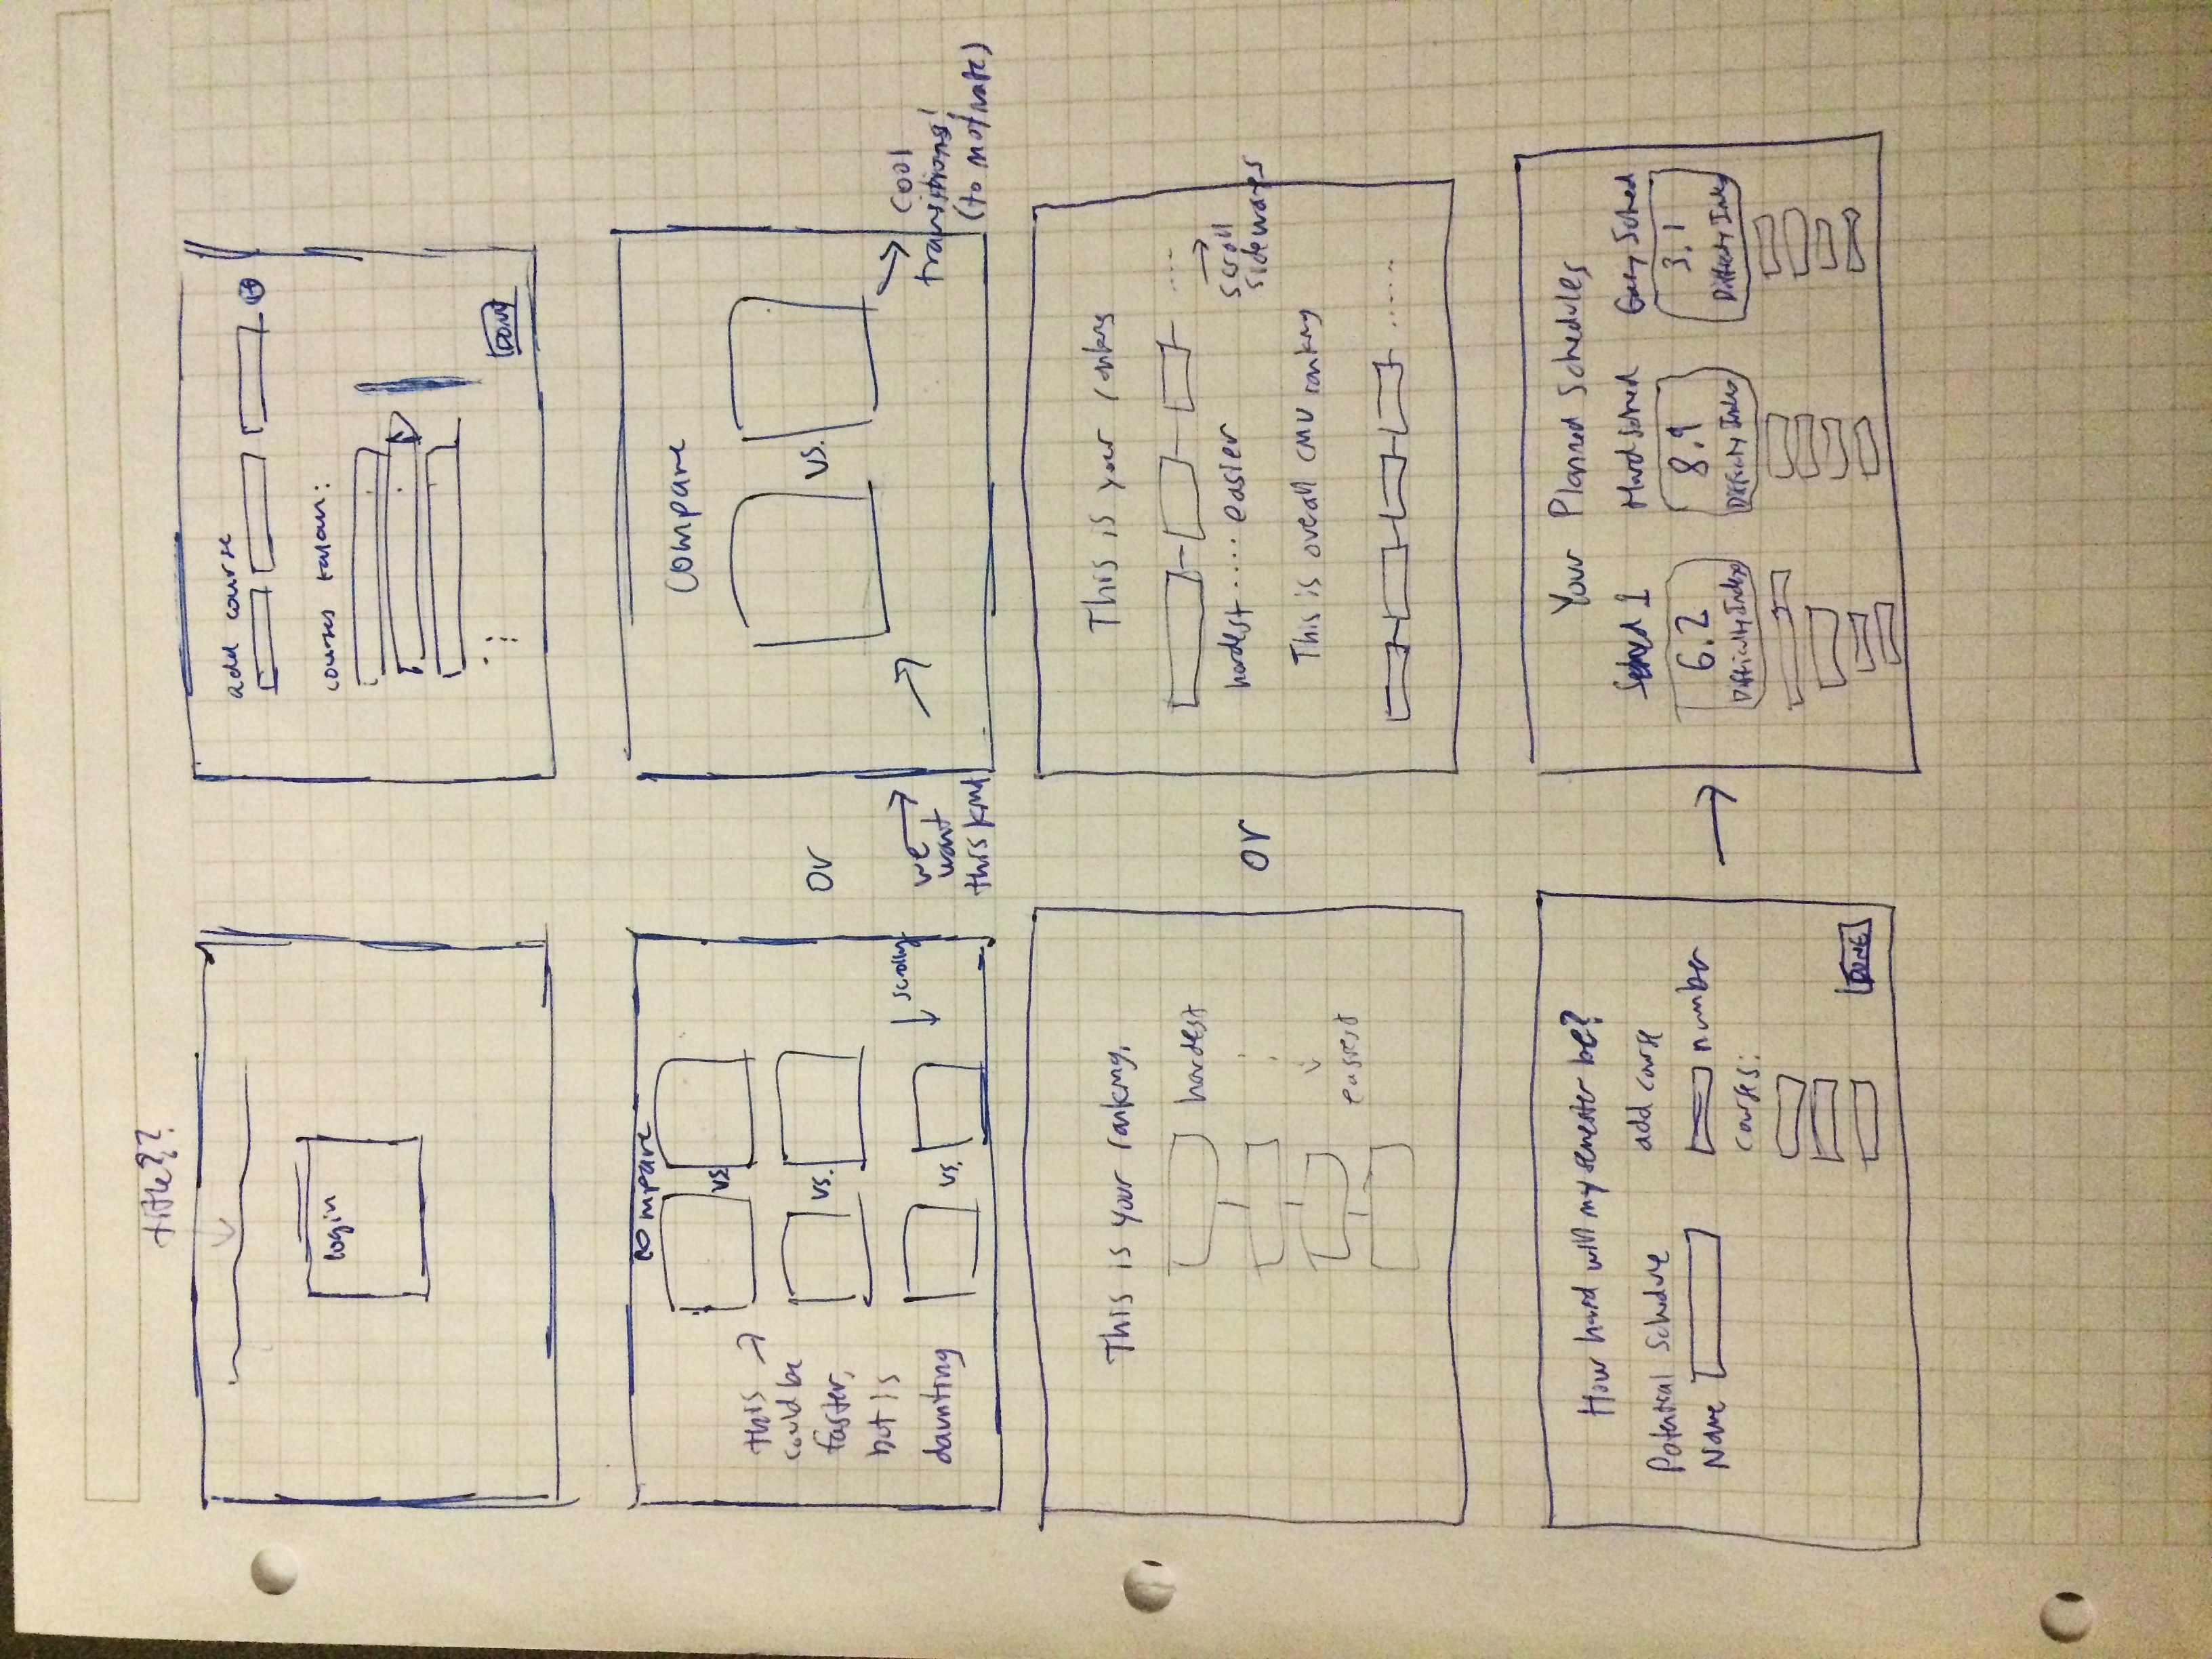 title??
login
add course
courses taken:
DONE
compare
vs.
vs.
vs.
scrolly
this
could be
faster,
but is
daunting
or
we
want
this kind
compare
vs.
cool
transitions!
(to motivate)
This is your ranking,
hardest
easiest
or
This is your ranking
hardest ..... easier
scroll
sideways
This is overall CMU ranking
How hard will my semester be?
Potential Schedule
Name
add course
number
courses:
DONE
Your Planned Schedules
Sched 1
6.2
Difficulty Index
Hard Sched
8.9
Difficulty Index
Easy Sched
3.1
Difficulty Index